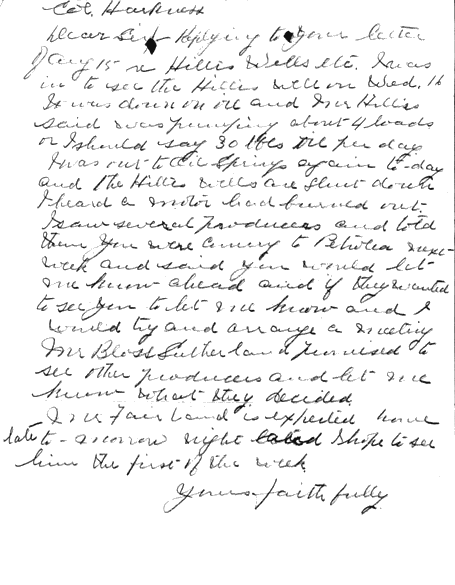 Col. Harkness
Dear Sir Replying to your letter
of Aug 15 re Hillis Wells etc. I was
in to see the Hillis well on Wed. 16
It was down on oil and Mr Hillis
said was pumping about 4 loads
or I should say 30 bbls oil per day
I was out to Oil Springs again to-day
and the Hillis wells are shut down
I heard a motor had burned out.
I saw several producers and told
them you were coming to Petrolia next
week and said you would let
me know ahead and if they wanted
to see you to let me know and I
would try and arrange a meeting
Mr Bloss Sutherland promised to
see other producers and let me
know what they decided.
Mr Fairbank is expected home
late to-morrow night I hope to see
him the first of the week
Yours faithfully